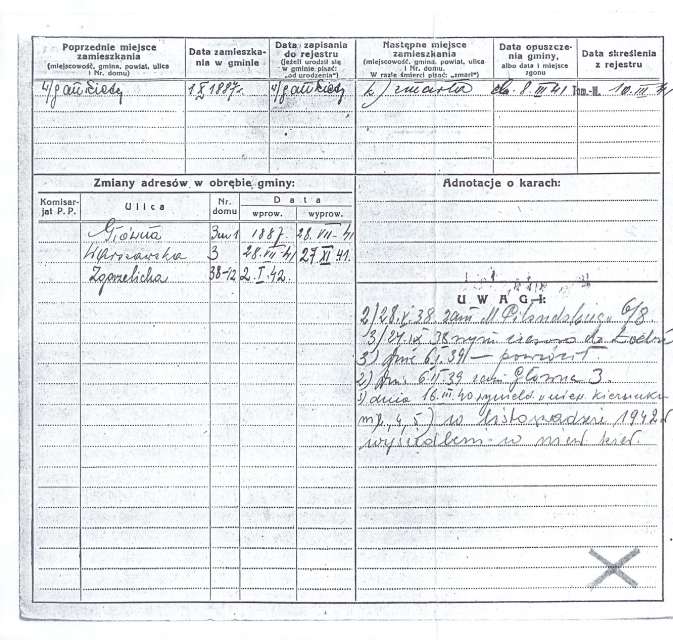 Poprzednie miejsce zamieszkania (miejscowość, gmina, powiat, ulica i Nr. domu)
Data zamieszkania w gminie
Data zapisania do rejestru (jeżeli urodził się w gminie pisać: „od urodzenia")
Następne miejsce zamieszkania (miejscowość, gmina, powiat, ulica i Nr. domu. W razie śmierci pisać: „zmarł")
Data opuszczenia gminy, albo data i miejsce zgonu
Data skreślenia z rejestru
1 X 1887r. zmarła 8 III 41 Tom.-M. 10. III. 41
Zmiany adresów w obrębie gminy:
Adnotacje o karach:
Komisarjat P. P.
Ulica
Nr. domu
Data
wprow.
wyprow.
Główna 3 m 1 1887. 28. VII-41
Warszawska 3 28. VII 41 27 XI 41.
Zgorzelicka 38-12 2. I. 42.
UWAGI:
2) 28. X. 38. zam. Piłsudskiego 6/8
3) 27. IX 38 czasowo do Łodzi
3) dnia 6. I. 39 — powrócił
2) dn. 6 II 39 zam Główna 3.
1) dnia 16. III. 40 wymeld. w niew. kierunku
4, 5) w listopadzie 1942 r
w